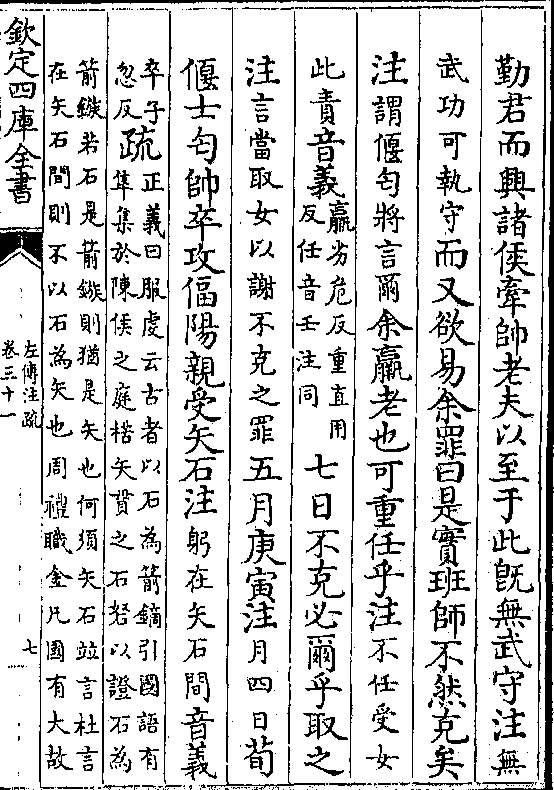 勤君而興諸侯牽帥老夫以至于此旣無武守注無
武功可執守而又欲易余罪曰是實班師不然克矣
注謂偃匄將言爾余羸老也可重任乎注不任受女
此責音義
羸劣危反重直用
反任音壬注同
七日不克必爾乎取之
注言當取女以謝不克之罪五月庚寅注月四日荀
偃士匄帥卒攻偪陽親受矢石注躬在矢石間音義
卒子
忽反
疏
正義曰服虔云古者以石為箭鏑引國語有
隼集於陳侯之庭楛矢貫之石砮以證石為
箭鏃若石是箭鏃則猶是矢也何須矢石竝言杜言
在矢石間則不以石為矢也周禮職金凡國有大故
欽定四庫全書
左傳注疏
卷三十一
七